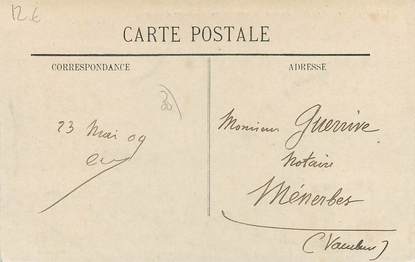 12 €
CARTE POSTALE
CORRESPONDANCE
ADRESSE
23 Mai 09
Monsieur Guerrive
notaire
Ménerbes
(Vaucluse)